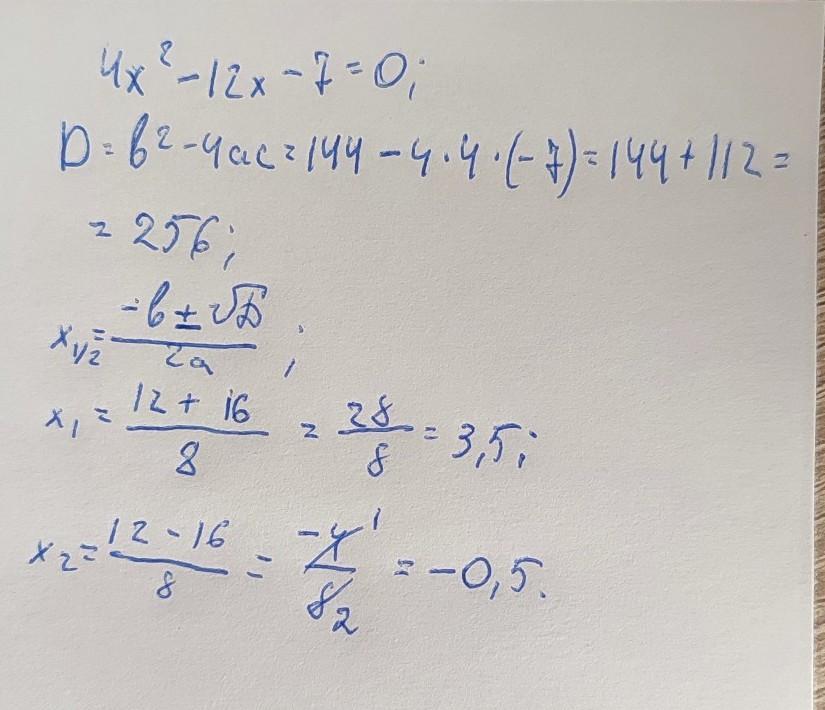 4x² - 12x - 7 = 0;
D = b² - 4ac = 144 - 4 · 4 · (-7) = 144 + 112 =
= 256;
x₁/₂ = (-b ± √D) / 2a ;
x₁ = (12 + 16) / 8 = 28 / 8 = 3,5;
x₂ = (12 - 16) / 8 = -4 ¹ / 8 ₂ = -0,5.